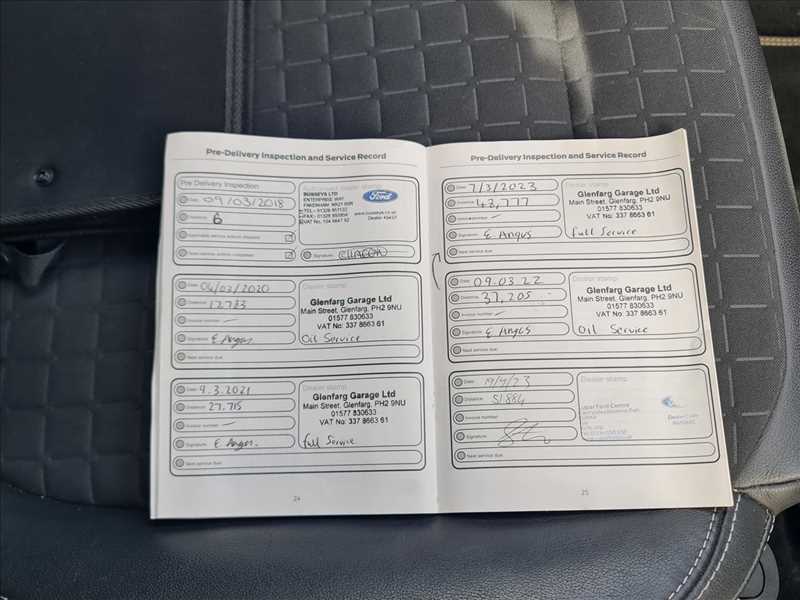 Pre-Delivery Inspection and Service Record
Pre Delivery Inspection
Date 09/03/2018
Distance 6
BUSSEYS LTD
ENTERPRISE WAY
FAKENHAM
www.busseys.co.uk
Ford
Signature
Date 06/03/2020
Distance 12783
Invoice number —
Signature E Angus
Next service due
Dealer stamp
Glenfarg Garage Ltd
Main Street, Glenfarg, PH2 9NU
01577 830633
VAT No: 337 8663 61
Oil Service
Date 9.3.2021
Distance 27,715
Invoice number —
Signature E Angus.
Next service due
Dealer stamp
Glenfarg Garage Ltd
Main Street, Glenfarg, PH2 9NU
01577 830633
VAT No: 337 8663 61
Full Service
24
Pre-Delivery Inspection and Service Record
Date 7/3/2023
Distance 43,777
Invoice number —
Signature E Angus
Next service due
Dealer stamp
Glenfarg Garage Ltd
Main Street, Glenfarg, PH2 9NU
01577 830633
VAT No: 337 8663 61
Full Service
Date 09.03.22
Distance 37,205
Invoice number —
Signature E Angus
Next service due
Dealer stamp
Glenfarg Garage Ltd
Main Street, Glenfarg, PH2 9NU
01577 830633
VAT No: 337 8663 61
Oil Service
Date
Distance 51884
Invoice number
Signature
Next service due
Dealer stamp
Ford Centre
25